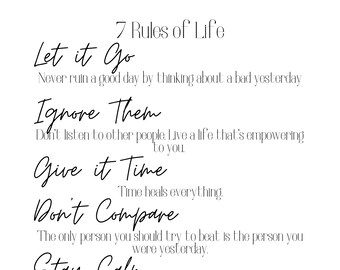 7 Rules of Life
Let it Go
Never ruin a good day by thinking about a bad yesterday
Ignore Them
Don't listen to other people. Live a life that's empowering
to you.
Give it Time
Time heals everything
Don't Compare
The only person you should try to beat is the person you
were yesterday.
Stay Calm